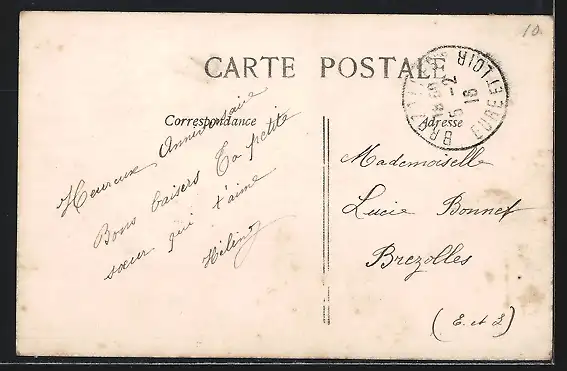 10
CARTE POSTALE
EURE ET LOIR
5 - 2
16
Correspondance
Adresse
Heureux Anniversaire
Bons baisers Ta petite
sœur qui t'aime
Hélène
Mademoiselle
Lucie Bonnet
Brezolles
(E. et L)